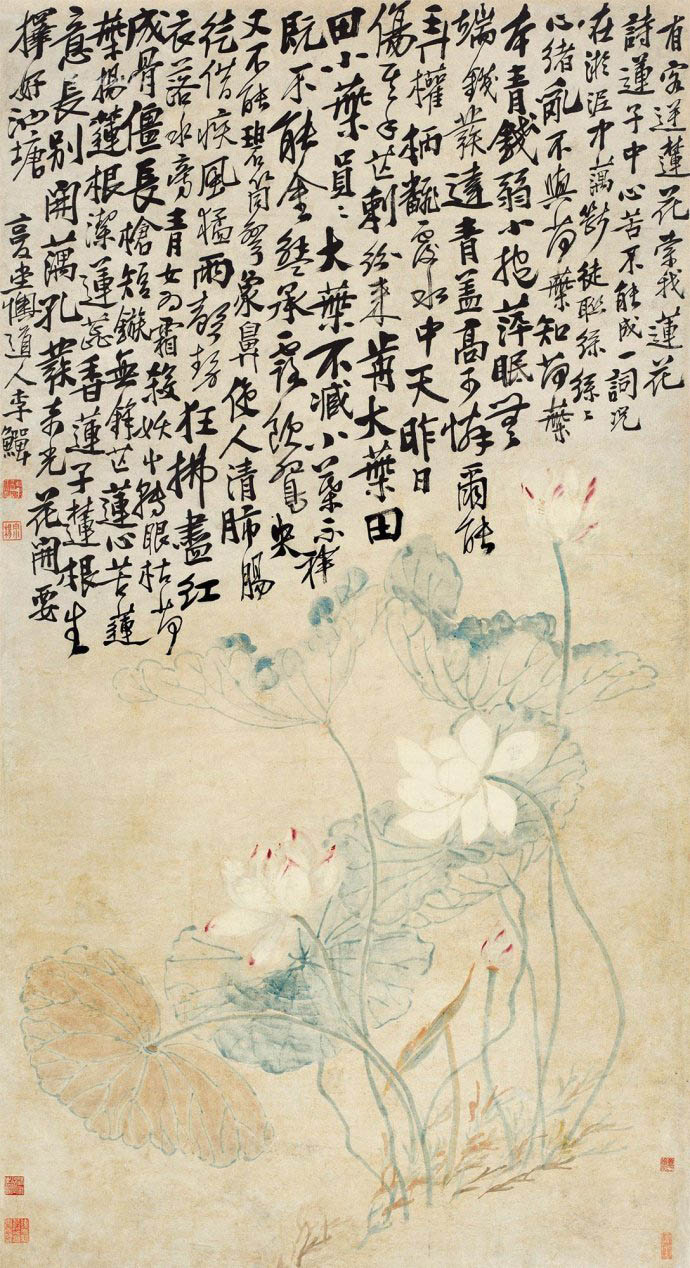 有客送蓮花索我蓮花
詩蓮子中心苦不能成一詞況
在淤泥中藕斷徒聯絲絲〻
心緒亂不與荷葉知荷葉
本青錢弱小抱萍眠無
端錢葉達青蓋高不爾能
弄權柄翻覆水中天昨日
傷其手芒刺紛來大葉田
田小葉員〻大葉不減小葉不祥
既不能承露飲鴛央
又不能碧筒彎象鼻使人清肺腸
徒借疾風猛雨聲狂拂盡紅
衣落水旁青女為霜殺眼枯荷
成骨僵長槍短鏃無鋒芒蓮心苦蓮
葉揚蓮根潔蓮蕊香蓮子蓮根生
意長別開藕孔發奇光花開要
擇好池塘
復堂懊道人李鱓